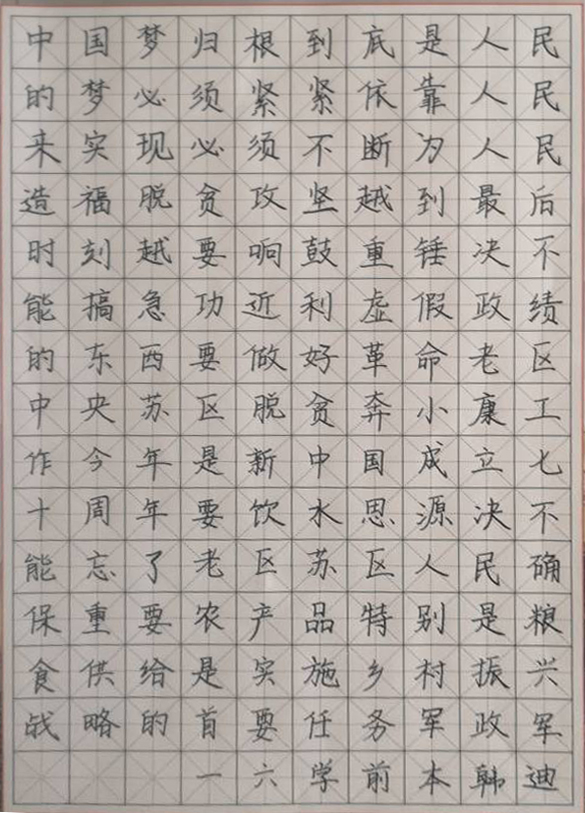 中国梦归根到底是人民
的梦必须紧紧依靠人民
来实现必须不断为人民
造福脱贫攻坚越到最后
时刻越要响鼓重锤决不
能搞急功近利虚假政绩
的东西要做好革命老区
中央苏区脱贫奔小康工
作今年是新中国成立七
十周年要饮水思源决不
能忘了老区苏区人民确
保重要农产品特别是粮
食供给是实施乡村振兴
战略的首要任务军政军
一六学前本韩迪